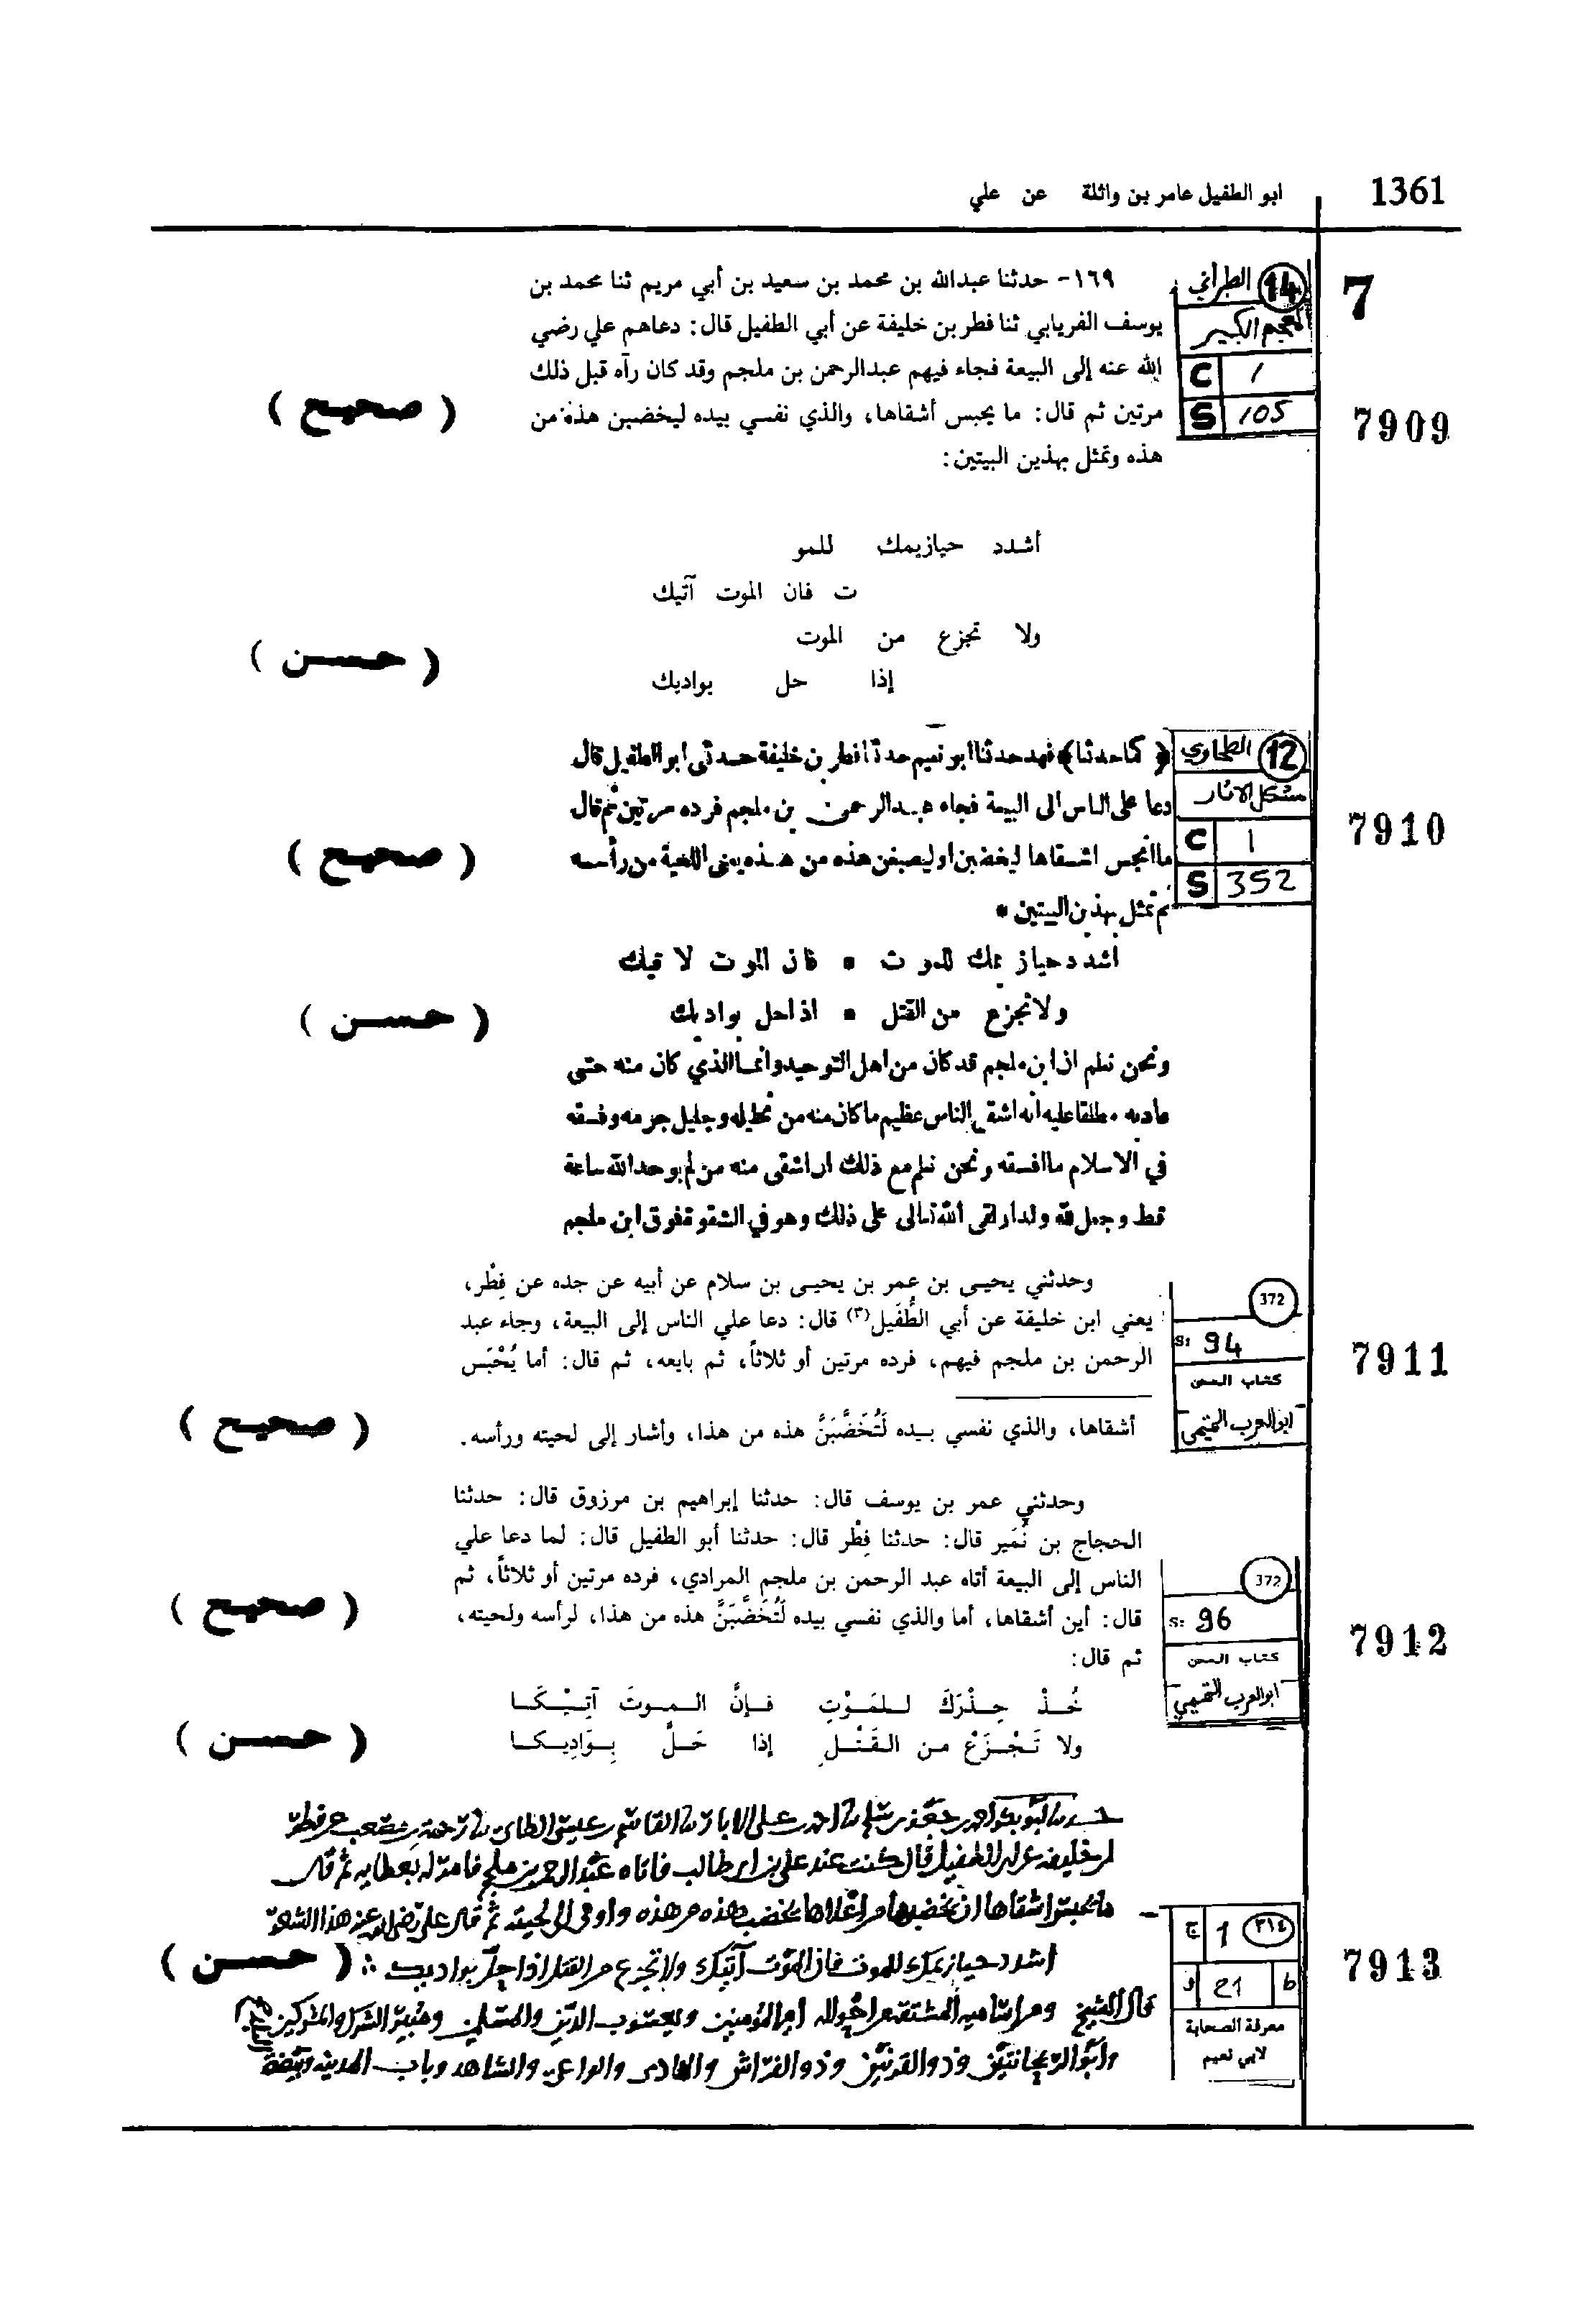 1361
ابو الطفيل عامر بن واثلة عن علي
7
14 الطبراني
المعجم الكبير
C 1
S 105
7909
١٦٩- حدثنا عبدالله بن محمد بن سعيد بن أبي مريم ثنا محمد بن
يوسف الفريابي ثنا فطر بن خليفة عن أبي الطفيل قال: دعاهم علي رضي
الله عنه إلى البيعة فجاء فيهم عبدالرحمن بن ملجم وقد كان رآه قبل ذلك
مرتين ثم قال: ما يحبس أشقاها، والذي نفسي بيده ليخضبن هذه من
( صحيح )
هذه وتمثل بهذين البيتين:
أشدد حيازيمك للمو
ت فان الموت آتيك
ولا تجزع من الموت
( حسن )
إذا حل بواديك
12 الطحاوي
مشكل الاثار
C 1
S 352
7910
﴿ كما حدثنا ﴾ فهد حدثنا ابو نعيم حدثنا فطر بن خليفة حدثنى ابو الطفيل قال
دعا على الناس الى البيعة فجاء عبد الرحمن بن ملجم فرده مرتين ثم قال
ما انحبس اشقاها ليخضبن او ليصبغن هذه من هذه يعنى اللحية من رأسه
( صحيح )
ثم تمثل بهذين البيتين *
اشدد حيازيمك للموت * فان الموت لاقيك
ولا تجزع من القتل * اذا حل بواديك
( حسن )
ونحن نعلم ان ابن ملجم قد كان من اهل التوحيد وانما الذي كان منه حتى
عاد به مطلقا عليه انه اشقى الناس عظيم ما كان منه من وجليل جرمه وفسقه
في الاسلام ما افسقه ونحن نعلم مع ذلك ان اشقى منه من لم يوحد الله ساعة
قط وجعل لله ولدا ولقى الله تعالى على ذلك وهو في الشقوة فوق ابن ملجم
372
S: 94
كتاب المحن
ابوالعرب التميمي
7911
وحدثني يحيى بن عمر بن يحيى بن سلام عن أبيه عن جده عن فِطْر،
يعني ابن خليفة عن أبي الطُّفَيل(٣) قال: دعا علي الناس إلى البيعة، وجاء عبد
الرحمن بن ملجم فيهم، فرده مرتين أو ثلاثاً، ثم بايعه، ثم قال: أما يُحْبَس
أشقاها، والذي نفسي بيده لَتُخَضَّبَنَّ هذه من هذا، وأشار إلى لحيته ورأسه.
( صحيح )
372
S: 96
كتاب المحن
ابوالعرب التميمي
7912
وحدثني عمر بن يوسف قال: حدثنا إبراهيم بن مرزوق قال: حدثنا
الحجاج بن نُمَير قال: حدثنا فِطْر قال: حدثنا أبو الطفيل قال: لما دعا علي
الناس إلى البيعة أتاه عبد الرحمن بن ملجم المرادي، فرده مرتين أو ثلاثاً، ثم
قال: أين أشقاها، أما والذي نفسي بيده لَتُخَضَّبَنَّ هذه من هذا، لرأسه ولحيته،
( صحيح )
ثم قال:
خُذْ حِذْرَكَ للمَوْتِ فإنَّ الموتَ آتِيْكَا
ولا تَجْزَعْ من القَتْلِ إذا حَلَّ بِوَادِيكا
( حسن )
٣١٤ 1 ج
b 21 و
معرفة الصحابة
لابي نعيم
7913
حدثنا ابو بكر احمد بن جعفر بن سلم ثنا احمد بن على الابار ثنا القاسم بن عيسى الطائ ثنا رحمة بن مصعب عن فطر
بن خليفه عن ابى الطفيل قال كنت عند على بن ابى طالب فاتاه عبد الرحمن بن ملجم فامر له بعطايه ثم قال
ما يحبس اشقاها ان يخضبها من اعلاها يخضب هذه من هذه واومى الى لحيته ثم قال على رضى الله عنه هذا الشعر
اشدد حيازيمك للموت فان الموت آتيك ولا تجزع من القتل اذا حل بواديك
( حسن )
قال الشيخ ومن اساميه المشتقة من احواله امير المؤمنين ويعسوب الدين والمسلمين ومبير الشرك والمشركين
وابو الريحانتين وذو القرنين وذو الفراش والهادى والواعى والشاهد وباب المدينه وبيضة